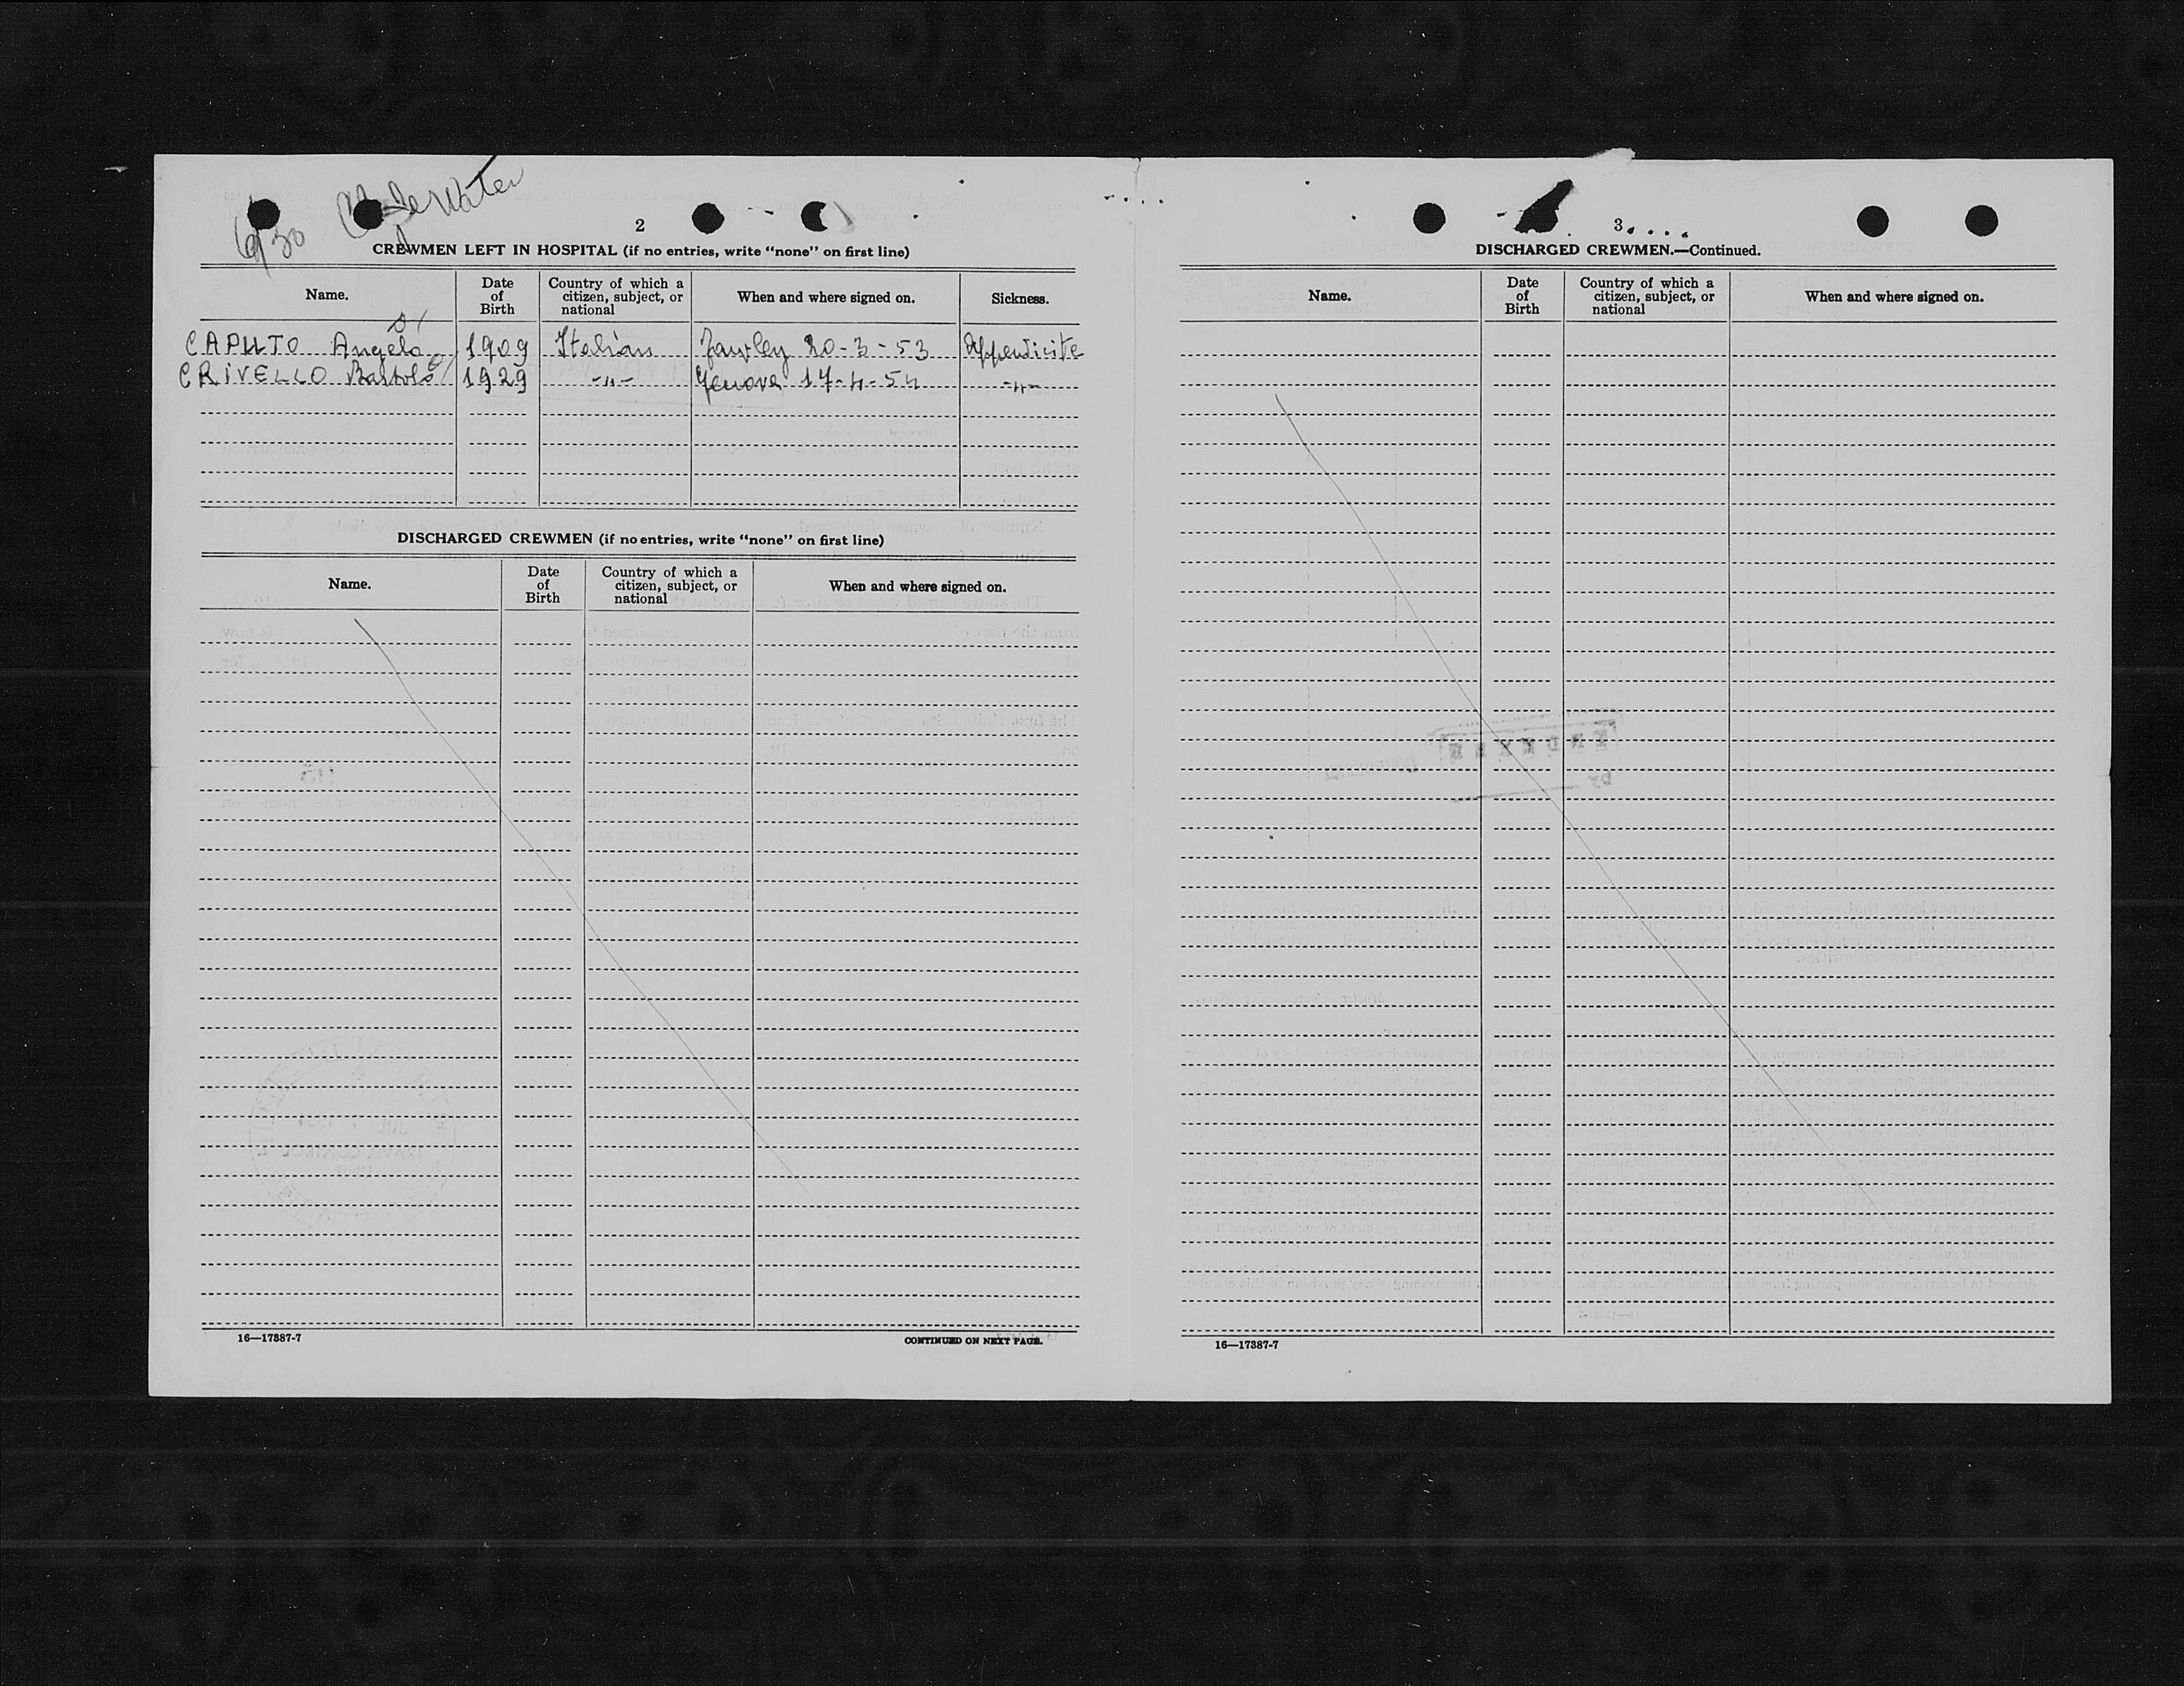 6/30
2
CREWMEN LEFT IN HOSPITAL (if no entries, write "none" on first line)
Name. Date of Birth Country of which a citizen, subject, or national When and where signed on. Sickness.
CAPUTO Angelo 1909 Italian Fawley 20-3-53 Appendicite
CRIVELLO Bartolo 1929 -"- Genova 17-4-54 -"-
DISCHARGED CREWMEN (if no entries, write "none" on first line)
Name. Date of Birth Country of which a citizen, subject, or national When and where signed on.
16—17387-7 CONTINUED ON NEXT PAGE.
3
DISCHARGED CREWMEN.—Continued.
Name. Date of Birth Country of which a citizen, subject, or national When and where signed on.
16—17387-7